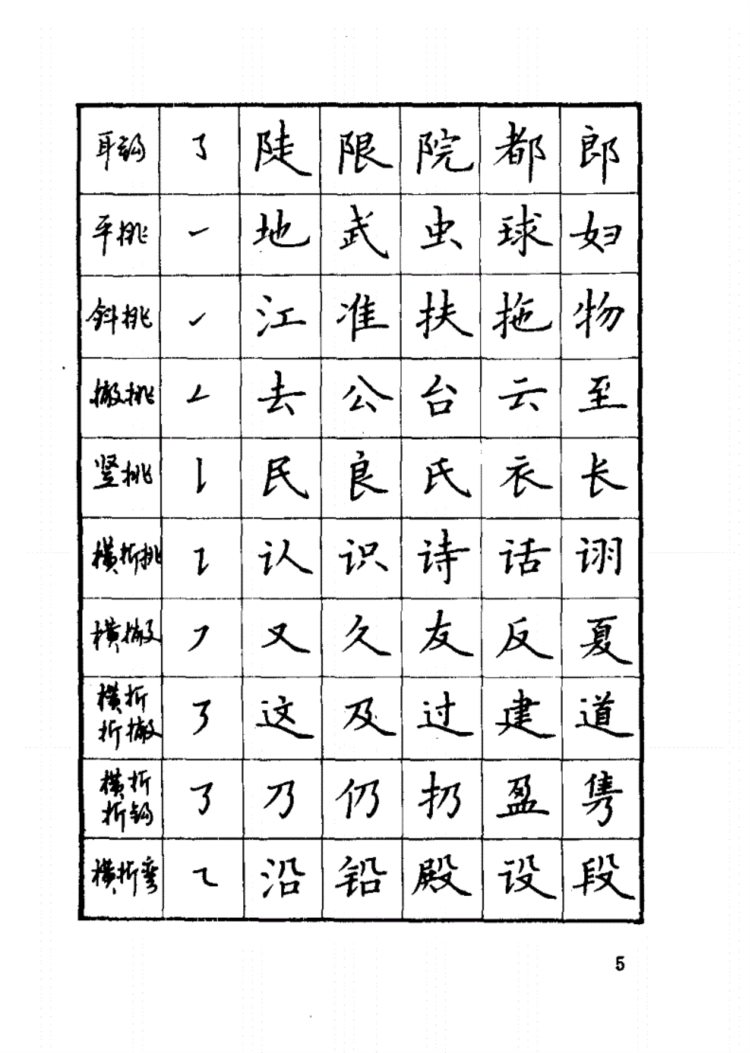 耳钩 陡 限 院 都 郎
平挑 地 武 虫 球 妇
斜挑 江 准 扶 拖 物
撇挑 去 公 台 云 至
竖挑 民 良 氏 衣 长
横折挑 认 识 诗 话 诩
横撇 又 久 友 反 夏
横折
折撇 这 及 过 建 道
横折
折钩 乃 仍 扔 盈 隽
横折弯 沿 铅 殿 设 段
5